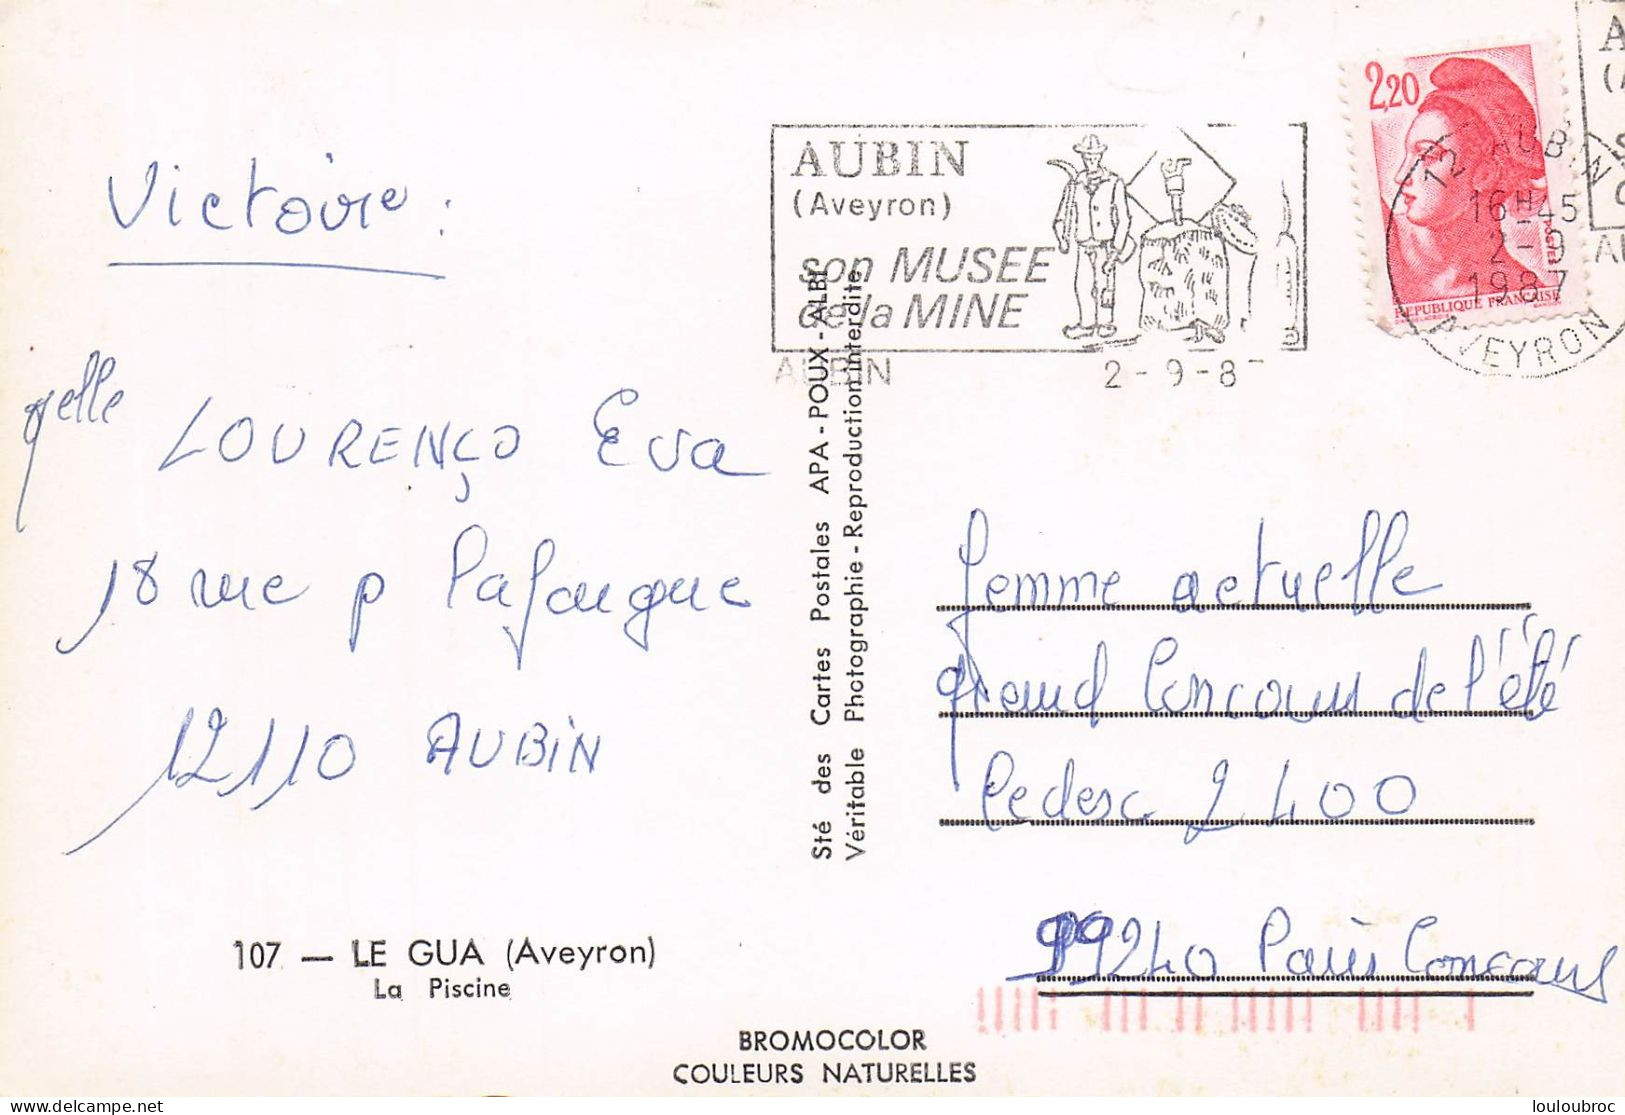 Victoire :
Melle LOURENÇO Eva
18 rue P Lafargue
12110 AUBIN
107 — LE GUA (Aveyron)
La Piscine
BROMOCOLOR
COULEURS NATURELLES
Sté des Cartes Postales APA - POUX - ALBI
Véritable Photographie - Reproduction interdite
AUBIN
(Aveyron)
son MUSEE
de la MINE
AUBIN 2-9-8
2,20
POSTES
REPUBLIQUE FRANÇAISE
12 AUBIN
16H-45
2-9
1987
AVEYRON
femme actuelle
grand Concours de l'été
Cedex 2400
99240 Paris Concours
louloubroc